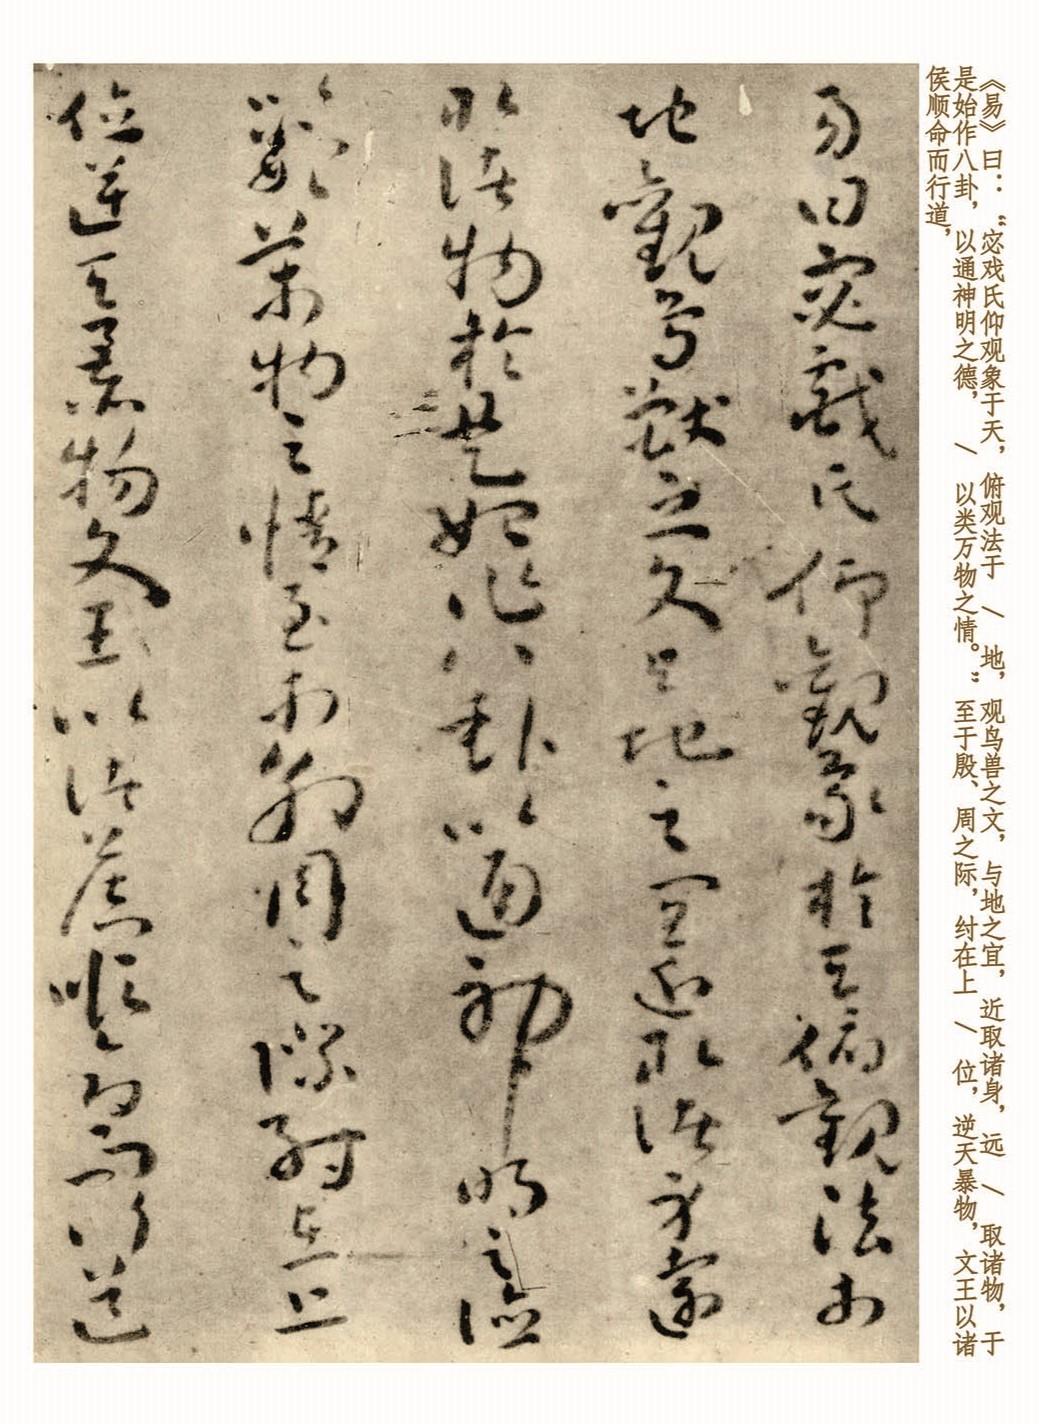 《易》曰：“宓戏氏仰观象于天，俯观法于 \ 地，观鸟兽之文，与地之宜，近取诸身，远 \ 取诸物，于
是始作八卦，以通神明之德， \ 以类万物之情。”至于殷、周之际，纣在上 \ 位，逆天暴物，文王以诸
侯顺命而行道，
易曰宓戲氏仰觀象於天俯觀法於
地觀鳥獸之文與地之宜近取諸身遠
取諸物於是始作八卦以通神明之德
以類萬物之情至於殷周之際紂在上
位逆天暴物文王以諸侯順命而行道